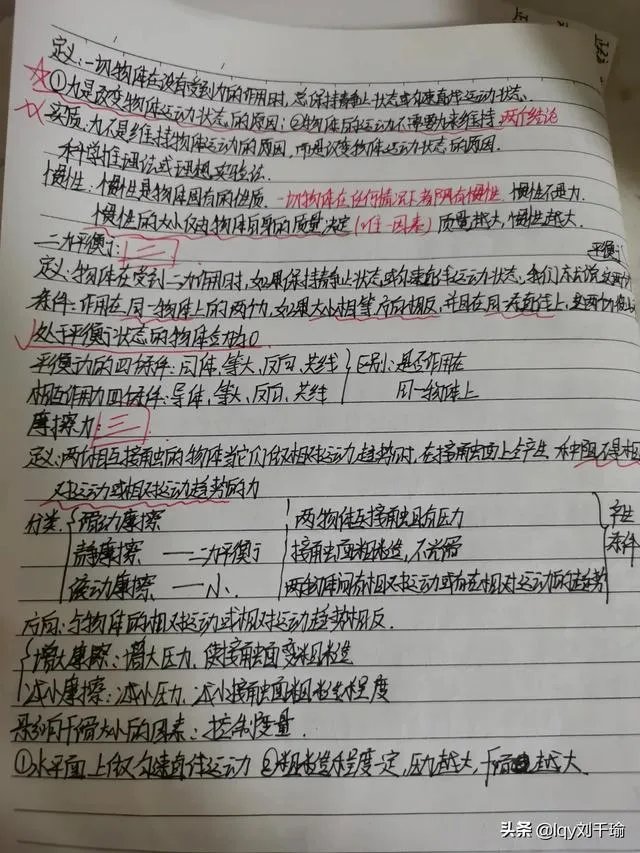 定义:一切物体在没有受到力的作用时,总保持静止状态或匀速直线运动状态。
①力是改变物体运动状态的原因;②物体的运动不需要力来维持,两个结论
实质:力不是维持物体运动的原因,而是改变物体运动状态的原因。
科学推理法或理想实验法.
惯性:惯性是物体固有的性质.一切物体在任何情况下都具有惯性.惯性不是力.
惯性的大小仅由物体自身的质量决定(唯一因素)质量越大,惯性越大.
二力平衡:二
平衡
定义:物体在受到二力作用时,如果保持静止状态或匀速直线运动状态,我们就说这两个
条件:作用在同一物体上的两个力,如果大小相等,方向相反,并且在同一直线上,这两个力
处于平衡状态的物体合力为0
平衡力的四条件:同体,等大,反向,共线 区别:是否作用在
相互作用力四条件:异体,等大,反向,共线 同一物体上
摩擦力:三
定义:两个相互接触的物体当它们做相对运动趋势时,在接触面上会产生一种阻碍相
对运动或相对运动趋势的力
分类:滑动摩擦 两物体互接触且有压力 产生
静摩擦——二力平衡 接触面粗糙,不光滑 条件
滚动摩擦——小. 两物体间有相对运动或存在相对运动的趋势
方向:与物体的相对运动或相对运动趋势相反.
增大摩擦:增大压力,使接触面变粗糙
减小摩擦:减小压力,减小接触面粗糙程度
影响f滑大小的因素:控制变量.
①水平面上做匀速直线运动 ②粗糙程度一定,压力越大,f越大.
头条 @lqy刘千瑜